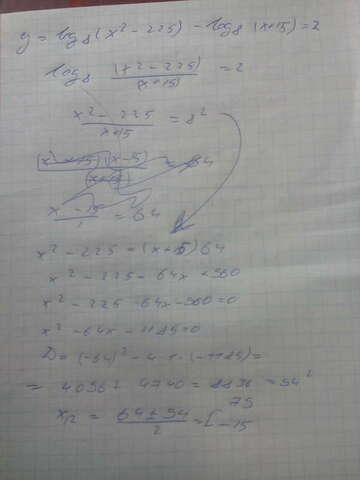 y = log₈(x² - 225) - log₈(x+15) = 2
log₈ (x² - 225)/(x+15) = 2
x² - 225/x+15 = 8²
(x+15)(x-15)/(x+15) = 64
x - 15/1 = 64
x² - 225 = (x+15) 64
x² - 225 = 64x + 960
x² - 225 - 64x - 960 = 0
x² - 64x - 1185 = 0
D = (-64)² - 4 · 1 · (-1185) =
= 4096 + 4740 = 8836 = 94²
x₁,₂ = 64 ± 94/2 = [ 79
-15